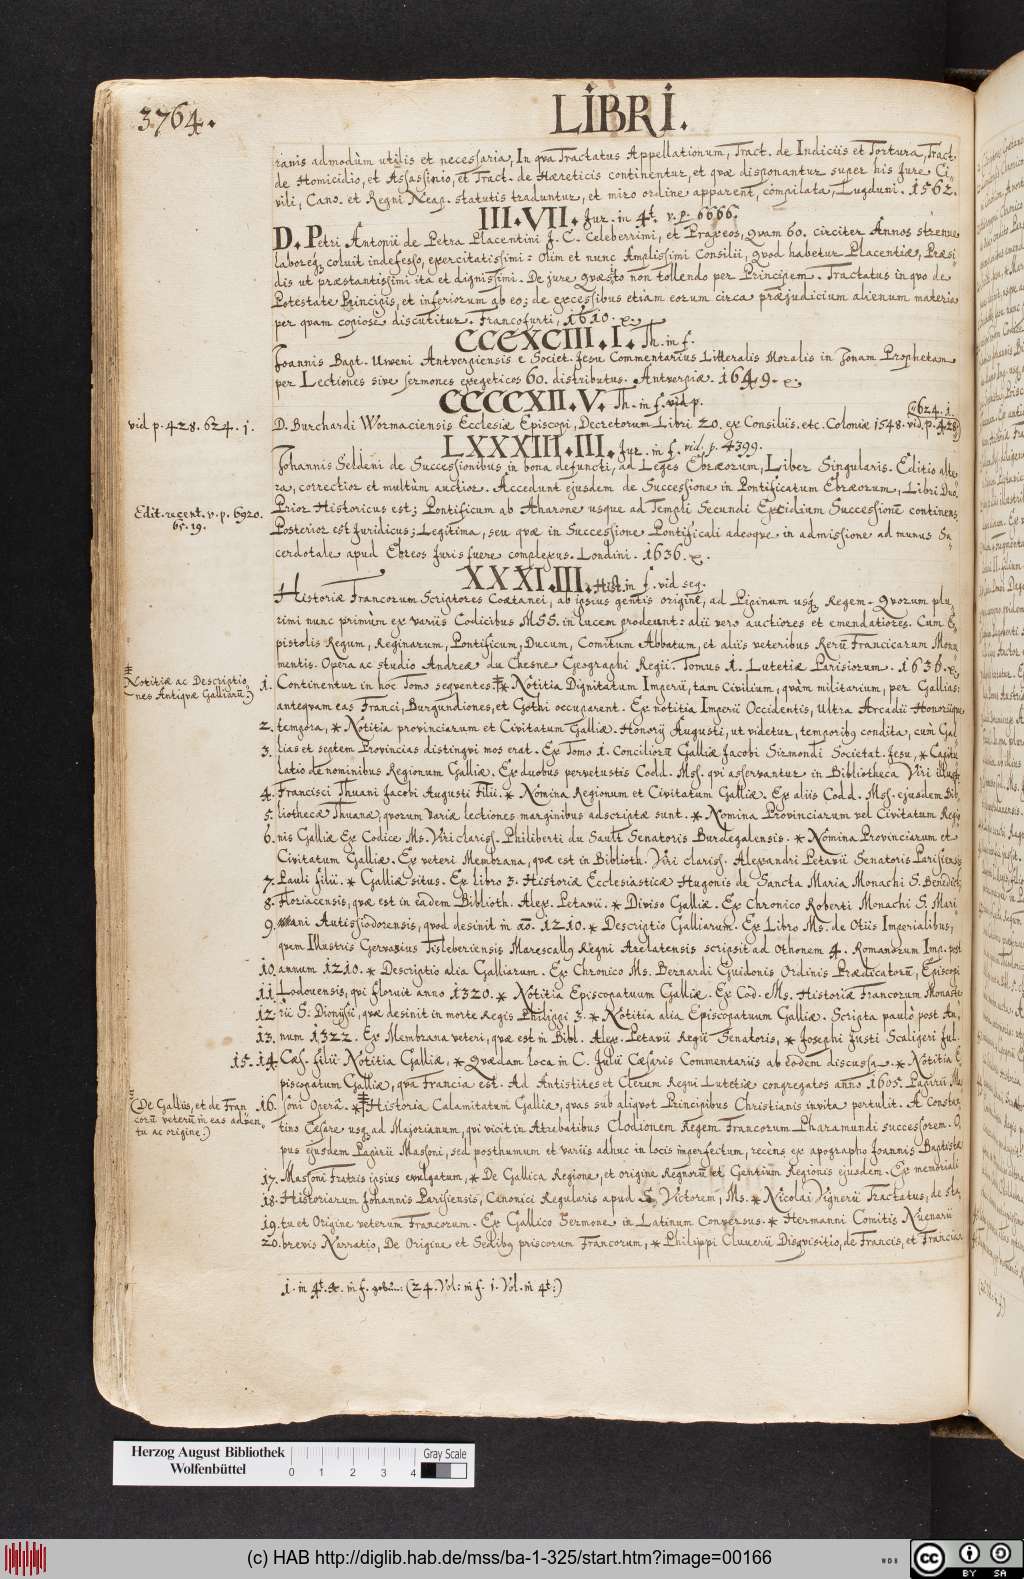 3764.
LIBRI.
rariis admodùm utilis et necessaria, In qua Tractatus Appellationum, Tract. de Indiciis et Tortura, Tract.
de Homicidio, et Assassinio, et Tract. de Hæreticis continentur, et quæ disponantur super his Jure Ci-
vili, Cano. et Regni Neap. statutis traduntur, et miro ordine apparent, compilata, Lugduni. 1562.
III. VII. Jur. in 4t. v. p. 6666.
D. Petri Antonii de Petra Placentini J. C. Celeberrimi, et Praxeos, quam 60. circiter Annos strenue
laboreq; coluit indefesso, exercitatissimi: Olim et nunc Amplissimi Consilii, quod habetur Placentiæ, Præsi-
dis ut præstantissimi ita et dignissimi. De jure quæsito non tollendo per Principem. Tractatus in quo de
Potestate Principis, et inferiorum ab eo; de excessibus etiam eorum circa præjudicium alienum materia
per quam copiosè discutitur. Francofurti, 1610.
CCCXCIII. I. Th. in f.
Joannis Bapt. Uweni Antverpiensis e Societ. Jesu Commentarius Litteralis Moralis in Jonam Prophetam
per Lectiones sive sermones exegeticos 60. distributus. Antverpiæ. 1649.
CCCCXII. V. Th. in f. vid p.
624. 1.
vid p. 428. 624. 1.
D. Burchardi Wormaciensis Ecclesiæ Episcopi, Decretorum Libri 20. ex Consiliis. etc. Coloniæ 1548. vid. p. 428
LXXXIIII. III. Jur. in f. vid. p. 4399.
Johannis Seldeni de Successionibus in bona defuncti, ad Leges Ebræorum, Liber Singularis. Editio alte-
ra, correctior et multùm auctior. Accedunt ejusdem de Successione in Pontificatum Ebræorum, Libri Duo.
Edit. recent. v. p. 6920.
65. 19.
Prior Historicus est; Pontificum ab Aharone usque ad Templi Secundi Excidium Successionē continens,
Posterior est Juridicus; Legitima, seu quæ in Successione Pontificali adeoque in admissione ad munus Sa-
cerdotale apud Ebreos Juris fuere complexus. Londini. 1636.
XXXI. III. Hist. in f. vid seq.
Historiæ Francorum Scriptores Coætanei, ab ipsius gentis origine, ad Pipinum usq; Regem. Quorum plu-
rimi nunc primùm ex variis Codicibus MSS. in lucem prodeunt: alii vero auctiores et emendatiores. Cum E-
pistolis Regum, Reginarum, Pontificum, Ducum, Comitum Abbatum, et aliis veteribus Rerū Francicarum Monu-
mentis. Opera ac studio Andreæ du Chesne Geographi Regii. Tomus 1. Lutetiæ Parisiorum. 1636.
Notitiæ ac Descriptio-
nes Antiquæ Galliarū)
1. Continentur in hoc Tomo sequentes. * Notitia Dignitatum Imperii, tam Civilium, quàm militarium, per Gallias:
antequam eas Franci, Burgundiones, et Gothi occuparent. Ex notitia Imperii Occidentis, Ultra Arcadii Honoriique
2. tempora, * Notitia provinciarum et Civitatum Galliæ Honorij Augusti, ut videtur, temporibq condita, cum Gal-
3. lias et septem Provincias distingui mos erat. Ex Tomo 1. Conciliorū Galliæ Jacobi Sirmondi Societat. Jesu, * Capitu-
latio de nominibus Regionum Galliæ. Ex duobus pervetustis Codd. Mss. qui asservantur in Bibliotheca Viri illustr.
4. Francisci Thuani Jacobi Augusti Filii. * Nomina Regionum et Civitatum Galliæ. Ex aliis Codd. Mss. ejusdem Bib-
5. liothecæ Thuanæ, quorum variæ lectiones marginibus adscriptæ sunt. * Nomina Provinciarum vel Civitatum Regio-
6. nis Galliæ Ex Codice Ms. Viri clariss. Philiberti du Sault Senatoris Burdegalensis. * Nomina Provinciarum et
Civitatum Galliæ. Ex veteri Membrana, quæ est in Biblioth. Viri clariss. Alexandri Petavii Senatoris Parisiensis
7. Pauli filii. * Galliæ situs. Ex libro 3. Historiæ Ecclesiasticæ Hugonis de Sancta Maria Monachi S. Benedicti
8. Floriacensis, quæ est in eadem Biblioth. Alex. Petavii. * Diviso Galliæ. Ex Chronico Roberti Monachi S. Mari-
9. ani Autissiodorensis, quod desinit in aō. 1210. * Descriptio Galliarum. Ex Libro Ms. de Otiis Imperialibus,
quem Illustris Gervasius Tisleberiensis Marescally Regni Arelatensis scripsit ad Othonem 4. Romanorum Imp. post
10. annum 1210. * Descriptio alia Galliarum. Ex Chronico Ms. Bernardi Guidonis Ordinis Prædicatorū, Episcopi
11. Lodovensis, qui floruit anno 1320. * Notitia Episcopatuum Galliæ. Ex Cod. Ms. Historiæ Francorum Monaste-
12. rii S. Dionysii, quæ desinit in morte Regis Philippi 3. * Notitia alia Episcopatuum Galliæ. Scripta paulò post An-
13. num 1322. Ex Membrana veteri, quæ est in Bibl. Alex. Petavii Regii Senatoris, * Josephi Justi Scaligeri Jul.
15. 14. Cæs. filii Notitia Galliæ, * Quædam loca in C. Julii Cæsaris Commentariis ab eodem discussa. * Notitia E-
piscopatum Galliæ, qua Francia est. Ad Antistites et Clerum Regni Lutetiæ congregatos anno 1605. Papirii Mas-
(De Galliis, et de Fran-
corū veterū in eas adven-
tu ac origine.)
16. soni Operâ. * Historia Calamitatum Galliæ, quas sub aliquot Principibus Christianis invita pertulit. A Constan-
tino Cesare usq; ad Majorianum, qui vicit in Atrebatibus Clodionem Regem Francorum Pharamundi successorem. O-
pus ejusdem Papirii Massoni, sed posthumum et variis adhuc in locis imperfectum, recèns ex apographo Joannis Baptistæ
17. Massoni Fratris ipsius evulgatum, * De Gallica Regione, et origine Regnorū et Gentium Regionis ejusdem. Ex memoriali
18. Historiarum Johannis Parisiensis, Canonici Regularis apud S. Victorem, Ms. * Nicolai Vignerii Tractatus, de sta-
19. tu et Origine veterum Francorum. Ex Gallico Sermone in Latinum Conversus. * Hermanni Comitis Nuenarii
20. brevis Narratio, De Origine et Sedibq priscorum Francorum, * Philippi Cluverii Disquisitio, de Francis, et Francia.
1. in 4t. in f. (24. Vol: in f. 1. Vol. in 4t:)
Herzog August Bibliothek
Wolfenbüttel
0 1 2 3 4
Gray Scale
(c) HAB http://diglib.hab.de/mss/ba-1-325/start.htm?image=00166
WDB
cc BY SA